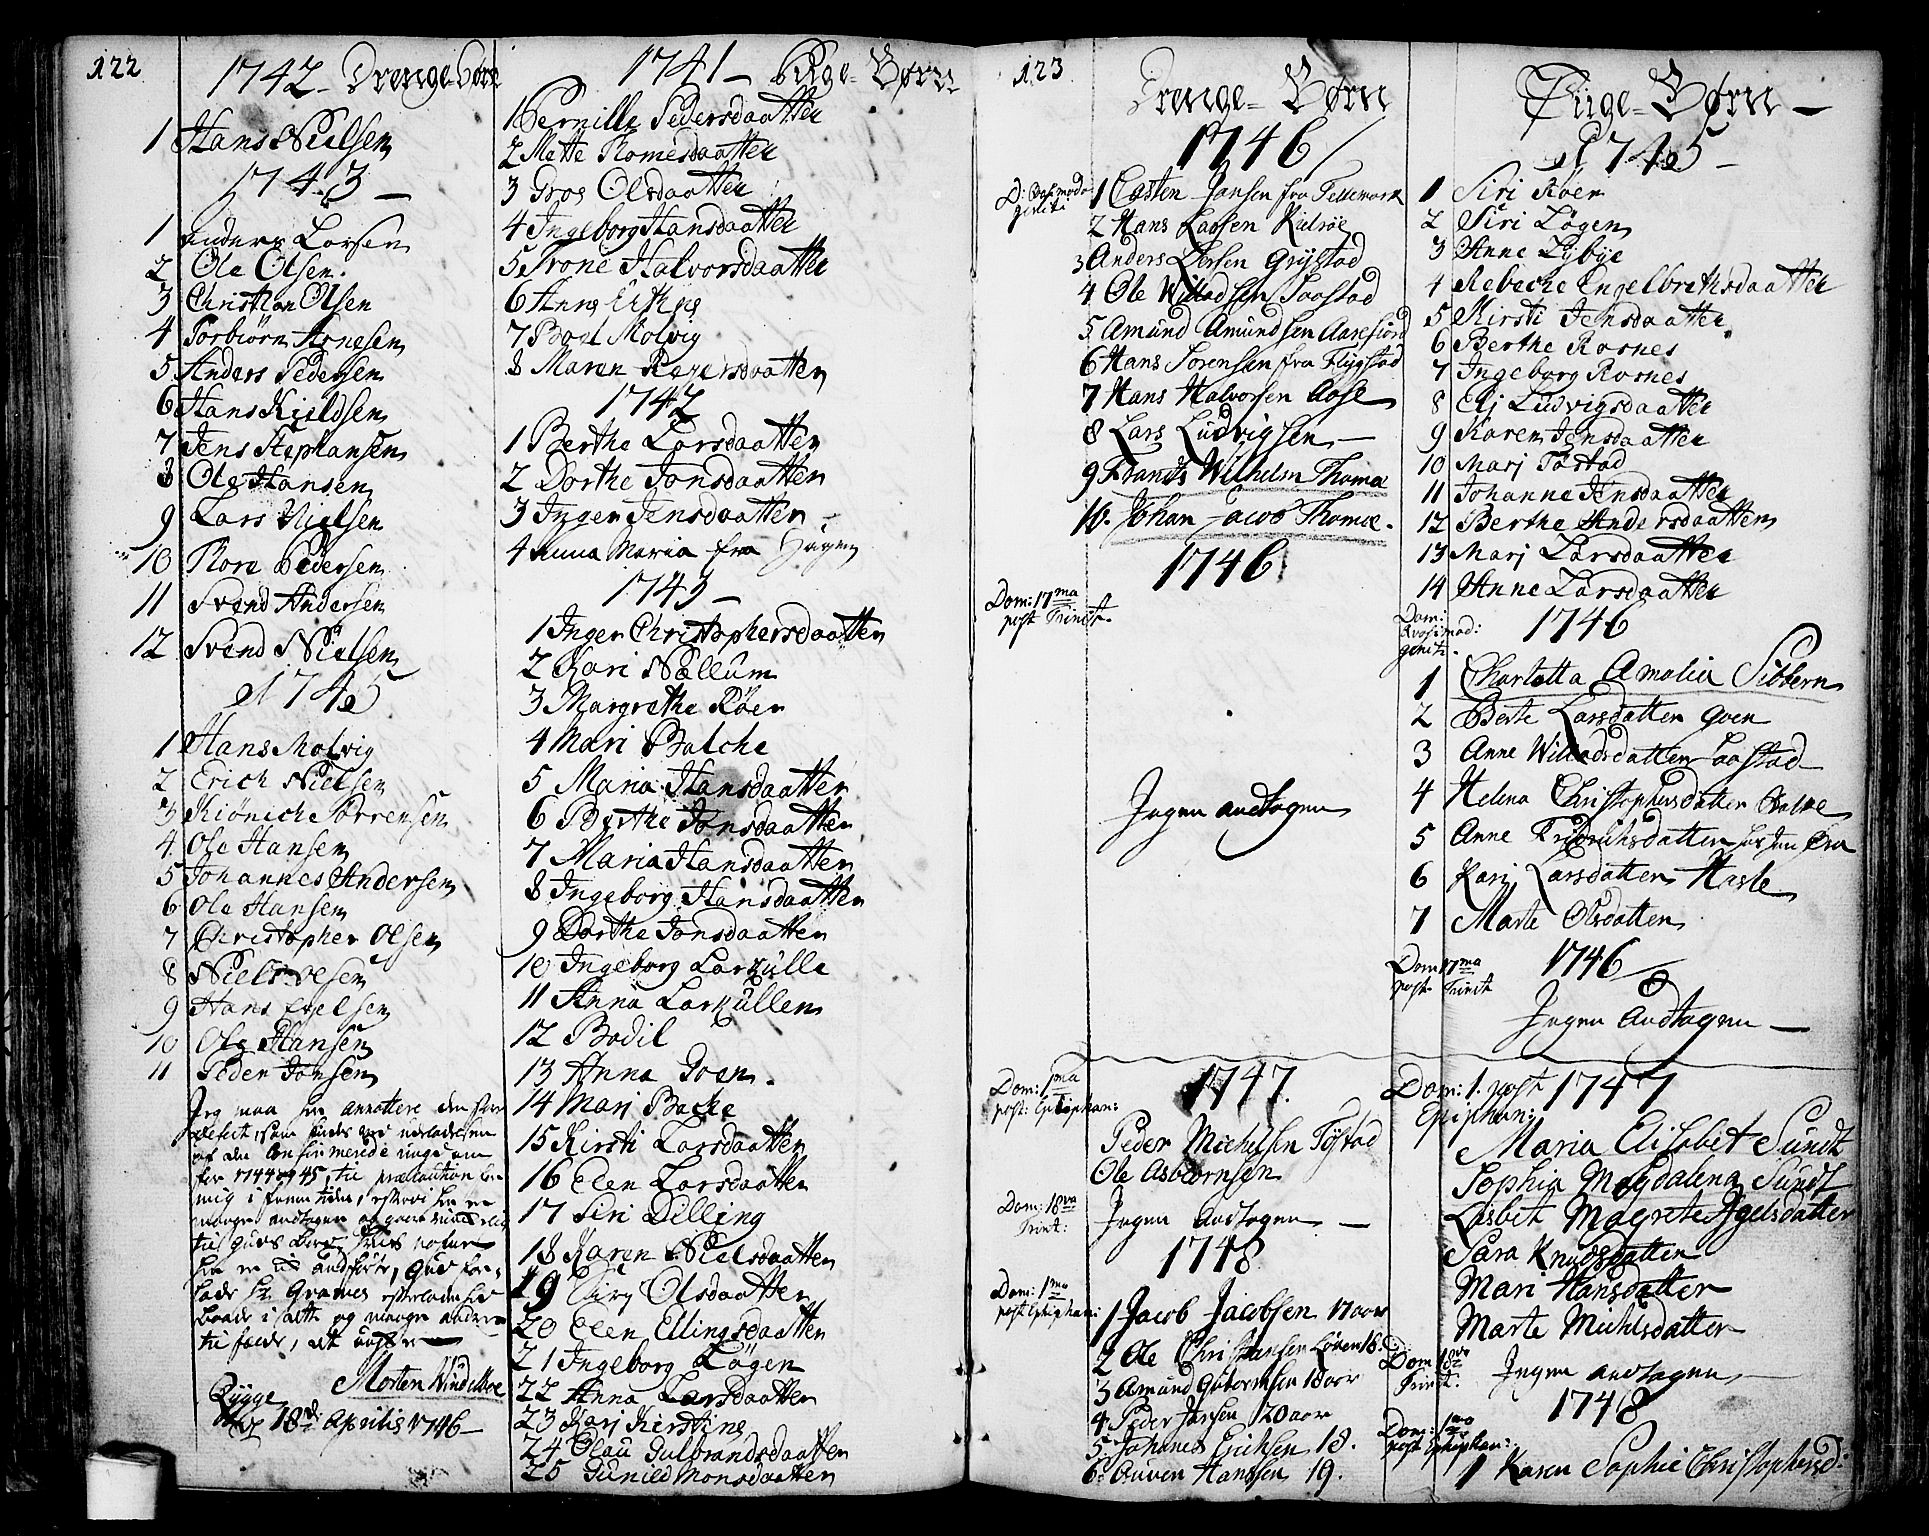 122
1742 - Drenge Børn
1 Hans Nielsen
1743 -
1 Anders Larsen
2 Ole Olsen.
3 Christian Olsen
4 Torbiørn Arnesen
5 Anders Pedersen
6 Hans Kieldsen
7 Jens Stephansen
8 Ole Hansen
9 Lars Nielsen
10 Tore Pedersen
11 Svend Andersen
12 Svend Nielsen
1745
1 Hans Molvig
2 Erich Nielsen
3 Kiønich Sørrensen
4 Ole Hansen
5 Johannes Andersen
6 Ole Hansen
7 Christopher Olsen
8 Niels
9 Hans
10 Ole Hansen
11 Peder Jonsen
Jeg maa her annottere den store
defect, som findes ved
af de Confirmerede unge
for 1744 og 45, til præcaution for
mig i frem tiden, efter
mange andtagen
til Guds Bord,
her er ei andført, Gud
Hr Gramer
baade i dette og mange andre
til fælde,
Morten Hindelboe
Rygge
18de Aprilis 1746 -
1741 - Pige - Børn
1 Pernille Pedersdaatter
2 Mette Tomesdaatter
3 Gros Olsdaatter
4 Ingeborg Hansdaatter
5 Trone Halvorsdaatter
6 Anne
7 Bodl Molvig
8 Maren Rejersdaatter
1742
1 Berthe Larsdaatter
2 Dorthe Jonsdaatter
3 Inger Jensdaatter -
4 Anna Maria fra Hagen
1743 -
1 Inger Christophersdaatter
2 Kari Nællum
3 Margrethe Røer
4 Mari Balche
5 Maria Hansdaatter
6 Berthe Jonsdaatter
7 Maria Hansdaatter
8 Ingeborg Hansdaatter
9 Dorthe Jonsdaatter
10 Ingeborg Larkulle
11 Anna Larkullen
12 Bodil
13 Anna Goen.
14 Mari Bache
15 Kirsti Larsdaatter
16 Elen Larsdaatter
17 Siri Dilling
18 Karen Nielsdaatter
19 Siry Olsdaatter
20 Elen Ellingsdaatter
21 Ingeborg Løgen
22 Anna Larsdaatter
23 Kari Kierstine
24 Olau Gulbrandsdaatter
25 Gunild Monsdaatter
123
Drenge - Børn
1746
D: Qvasimodo
geniti
1 Casten Jansen fra Tellemark
2 Hans Lassen Kulsøe
3 Anders Larsen Grystad
4 Ole Willadsen Taastad
5 Amund Amundsen Aarefiord
6 Hans Sørensen fra Flygstad
7 Hans Halvorsen Aase
8 Lars Ludvigsen -
9 Frants Wilhelm Thomæ
10. Johan Jacob Thomæ.
1746
Dom: 17ma
post Trinit.
Ingen andtagen
Dom: 1ma
post: Epiphan:
1747.
Peder Michelsen Tøstad
Ole Asbiørnsen
Dom: 18va
Trinit:
Ingen andtagen -
1748
Dom: 1ma
post Epiphan:
1 Jacob Jacobsen 17 aar
2 Ole Christiansen Løken 18.
3 Amund Gutormsen 18 aar
4 Peder Jansen 20 aar
5. Johanes Erichsen 18.
6. Auven Hanssen 19.
Piige - Børn -
1745 -
1 Siri Røer
2 Siri Løgen
3 Anne Lybye
4 Rebecke Engelbrethsdaatter
5 Kirsti Jensdaatter
6 Berthe Rosnes
7 Ingeborg Rosnes
8 Elj Ludvigsdaatter
9 Karen Jensdaatter
10 Marj Tøstad
11 Johanne Jensdaatter
12 Berthe Andersdaatter
13 Marj Larsdaatter
14 Anne Larsdaatter
Dom:
Qvasimod:
genit:
1746
1 Charlotta Amalia Sibbern
2 Berte Larsdatter Goen
3 Anne Willadsdatter Taastad
4 Helena Christophersdatter
5 Anne Fridrichsdatter
6 Kari Larsdatter Hasle
7 Marte Olsdatter
Dom 17ma
post Trinit
1746
Ingen andtagen -
Dom: 1. post 1747
Epiphan:
Maria Elisabet Sundt
Sophia Magdalena Sundt
Lisbet Magrete Agelsdatter
Sara Knudsdatter
Mari Hansdatter
Marte Michlsdatter
Dom 18va
Trinit:
Ingen andtagen -
1748
Dom: 1ma
post Epiphan:
1 Karen Sophie Christophersd: